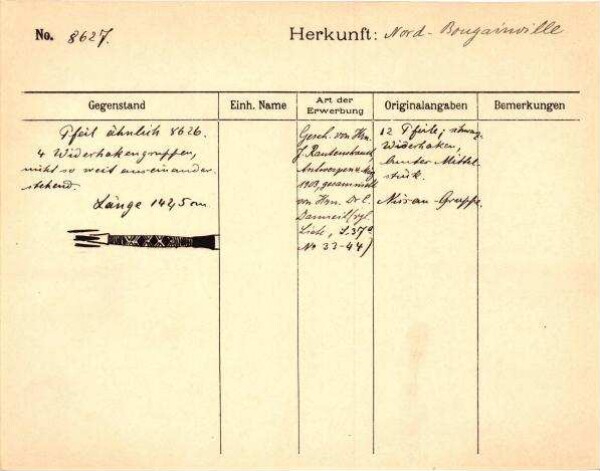 No. 8627.
Herkunft: Nord-Bougainville
Gegenstand
Einh. Name
Art der
Erwerbung
Originalangaben
Bemerkungen
Pfeil ähnlich 8626.
4 Widerhakengruppen,
nicht so weit auseinander
stehend.
Länge 142,5 cm
Gesch. von Hrn.
J. Rautenstrauch,
Antwerpen
1903, gesammelt
von Hrn. Dr. E.
Liste, S. 37a
No 33-44)
12 Pfeile,
Widerhaken,
bunter Mittel-
stück.
Nissan-Gruppe.